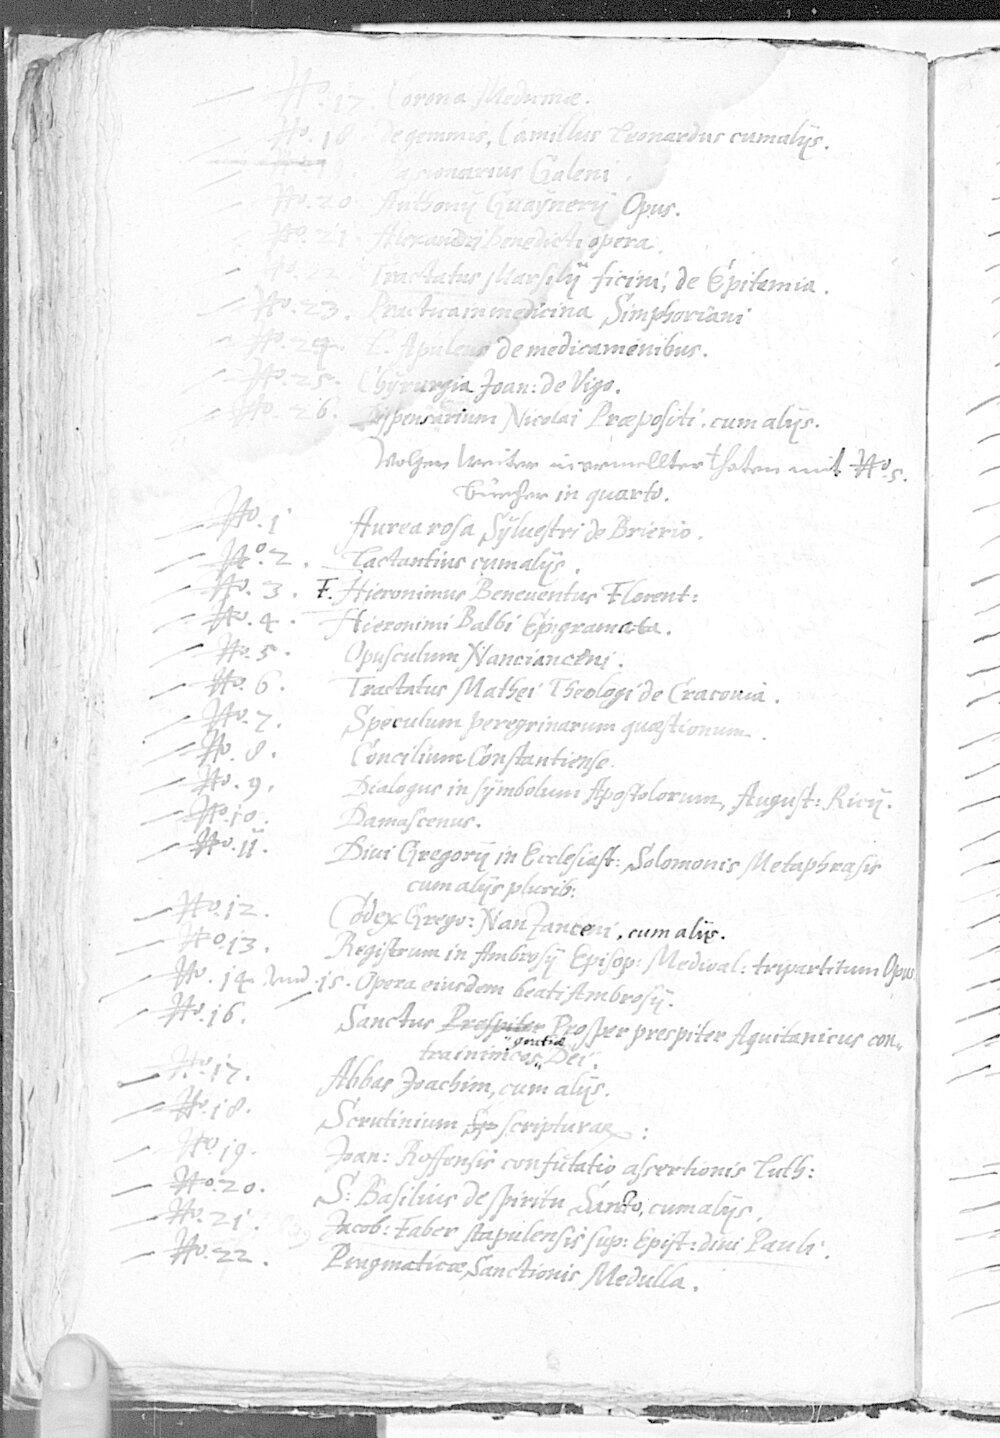 No. 17. Corona Medicinæ.
No. 18 de gemmis, Camillus Leonardus cum alijs.
Galeni.
No. 20 Anthonij Guaÿnerij Opus.
No. 21 Alexandri Benedicti opera.
No. 22. Tractatus Marsilij ficini, de Epitemia.
No. 23. Practica in medicina Simphoriani
No. 24. L. Apuleus de medicaminibus.
No. 25. Chÿrurgia Joan: de Vigo.
No. 26. Dispensarium Nicolai Præpositi. cum alijs.
Volgen Weiter in mit No. 5.
Büecher in quarto.
No. 1 Aurea rosa Sÿluestri de Prierio.
No. 2. Lactantius cum alijs.
No. 3. F. Hieronimus Beneuentus Florent:
No. 4. Hieronimi Balbi Epigramata.
No. 5. Opusculum Nancianceni.
No. 6. Tractatus Mathei Theologi de Cracouia.
No. 7. Speculum peregrinarum quæstionum.
No. 8. Concilium Constantiense.
No. 9. Dialogus in sÿmbolum Apostolorum, August: Ricij.
No. 10. Damascenus.
No. 11. Diui Gregorij in Ecclesiast: Solomonis Metaphrasis
cum alijs plurib:
No. 12. Codex Grego: Nanzanceni, cum alijs.
No. 13. Registrum in Ambrosij Episcop: Mediol: tripartitum Opus
No. 14. Vnd. 15. Opera eiusdem beati Ambrosij.
No. 16. Sanctus Prespiter Prosper prespiter Aquitanicus con„
gratiæ
tra inimicos Dei.
No. 17. Abbas Joachim, cum alijs.
No. 18. Scrutinium Sp scripturar:
No. 19. Joan: Roffensis confutatio assertionis Luth:
No. 20. S: Basilius de spiritu Sancto, cum alijs.
No. 21. Jacob: Faber stapulensis sup: Epist: diui Pauli.
No. 22. Prugmaticæ Sanctionis Medulla.